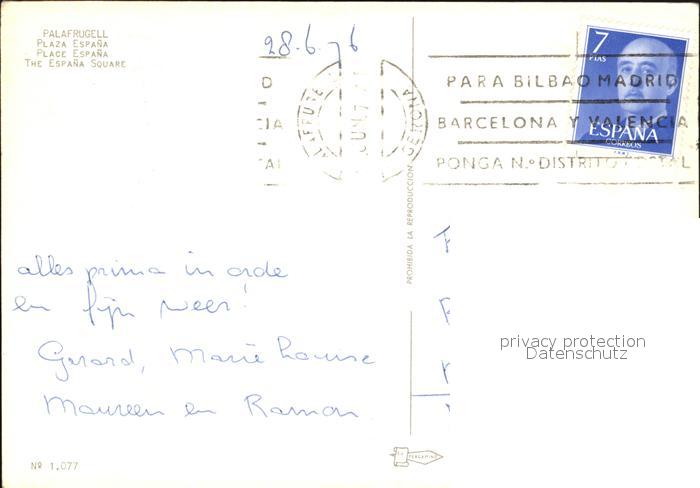 PALAFRUGELL
PLAZA ESPAÑA
PLACE ESPAÑA
THE ESPAÑA SQUARE
28.6.76
GERONA
PARA BILBAO MADRID
BARCELONA Y VALENCIA
PONGA N.º DISTRITO POSTAL
7
PTAS
ESPAÑA
CORREOS
PROHIBIDA LA REPRODUCCION
alles prima in orde
en fijn weer!
Gerard, Marie Louise
Maureen en Ramon
privacy protection
Datenschutz
PERGAMINO
Nº 1.077